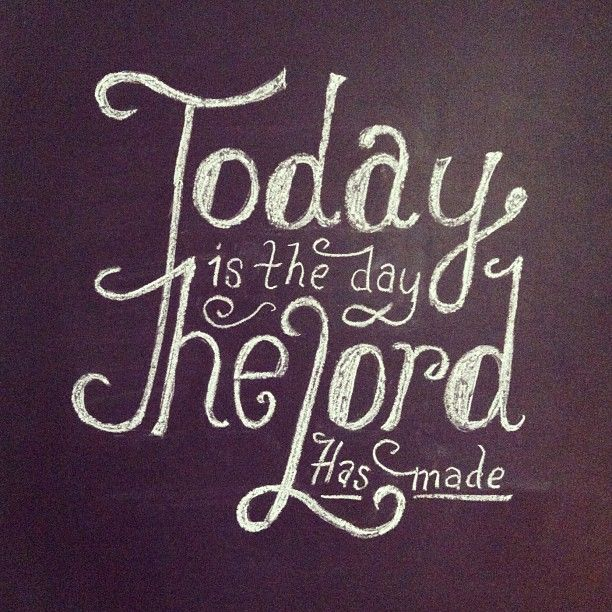 Today
is the day
The Lord
Has made